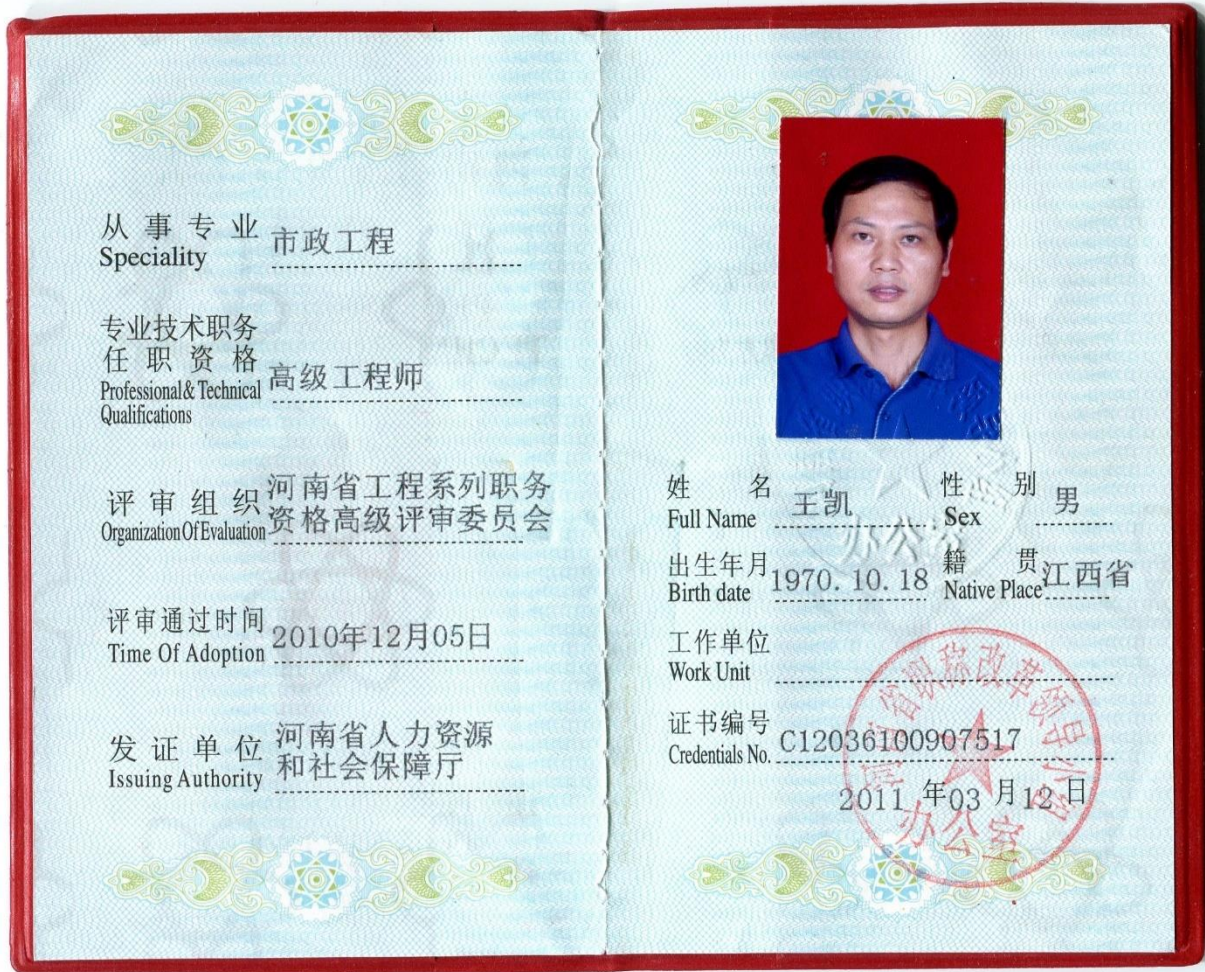 从事专业
Speciality
市政工程
专业技术职务
任职资格
Professional & Technical
Qualifications
高级工程师
评审组织
Organization Of Evaluation
河南省工程系列职务
资格高级评审委员会
评审通过时间
Time Of Adoption
2010年12月05日
发证单位
Issuing Authority
河南省人力资源
和社会保障厅
姓名
Full Name
王凯
性别
Sex
男
出生年月
Birth date
1970.10.18
籍贯
Native Place
江西省
工作单位
Work Unit
证书编号
Credentials No.
C12036100907517
2011年03月12日
河南省职称改革领导小组
办公室
办公室